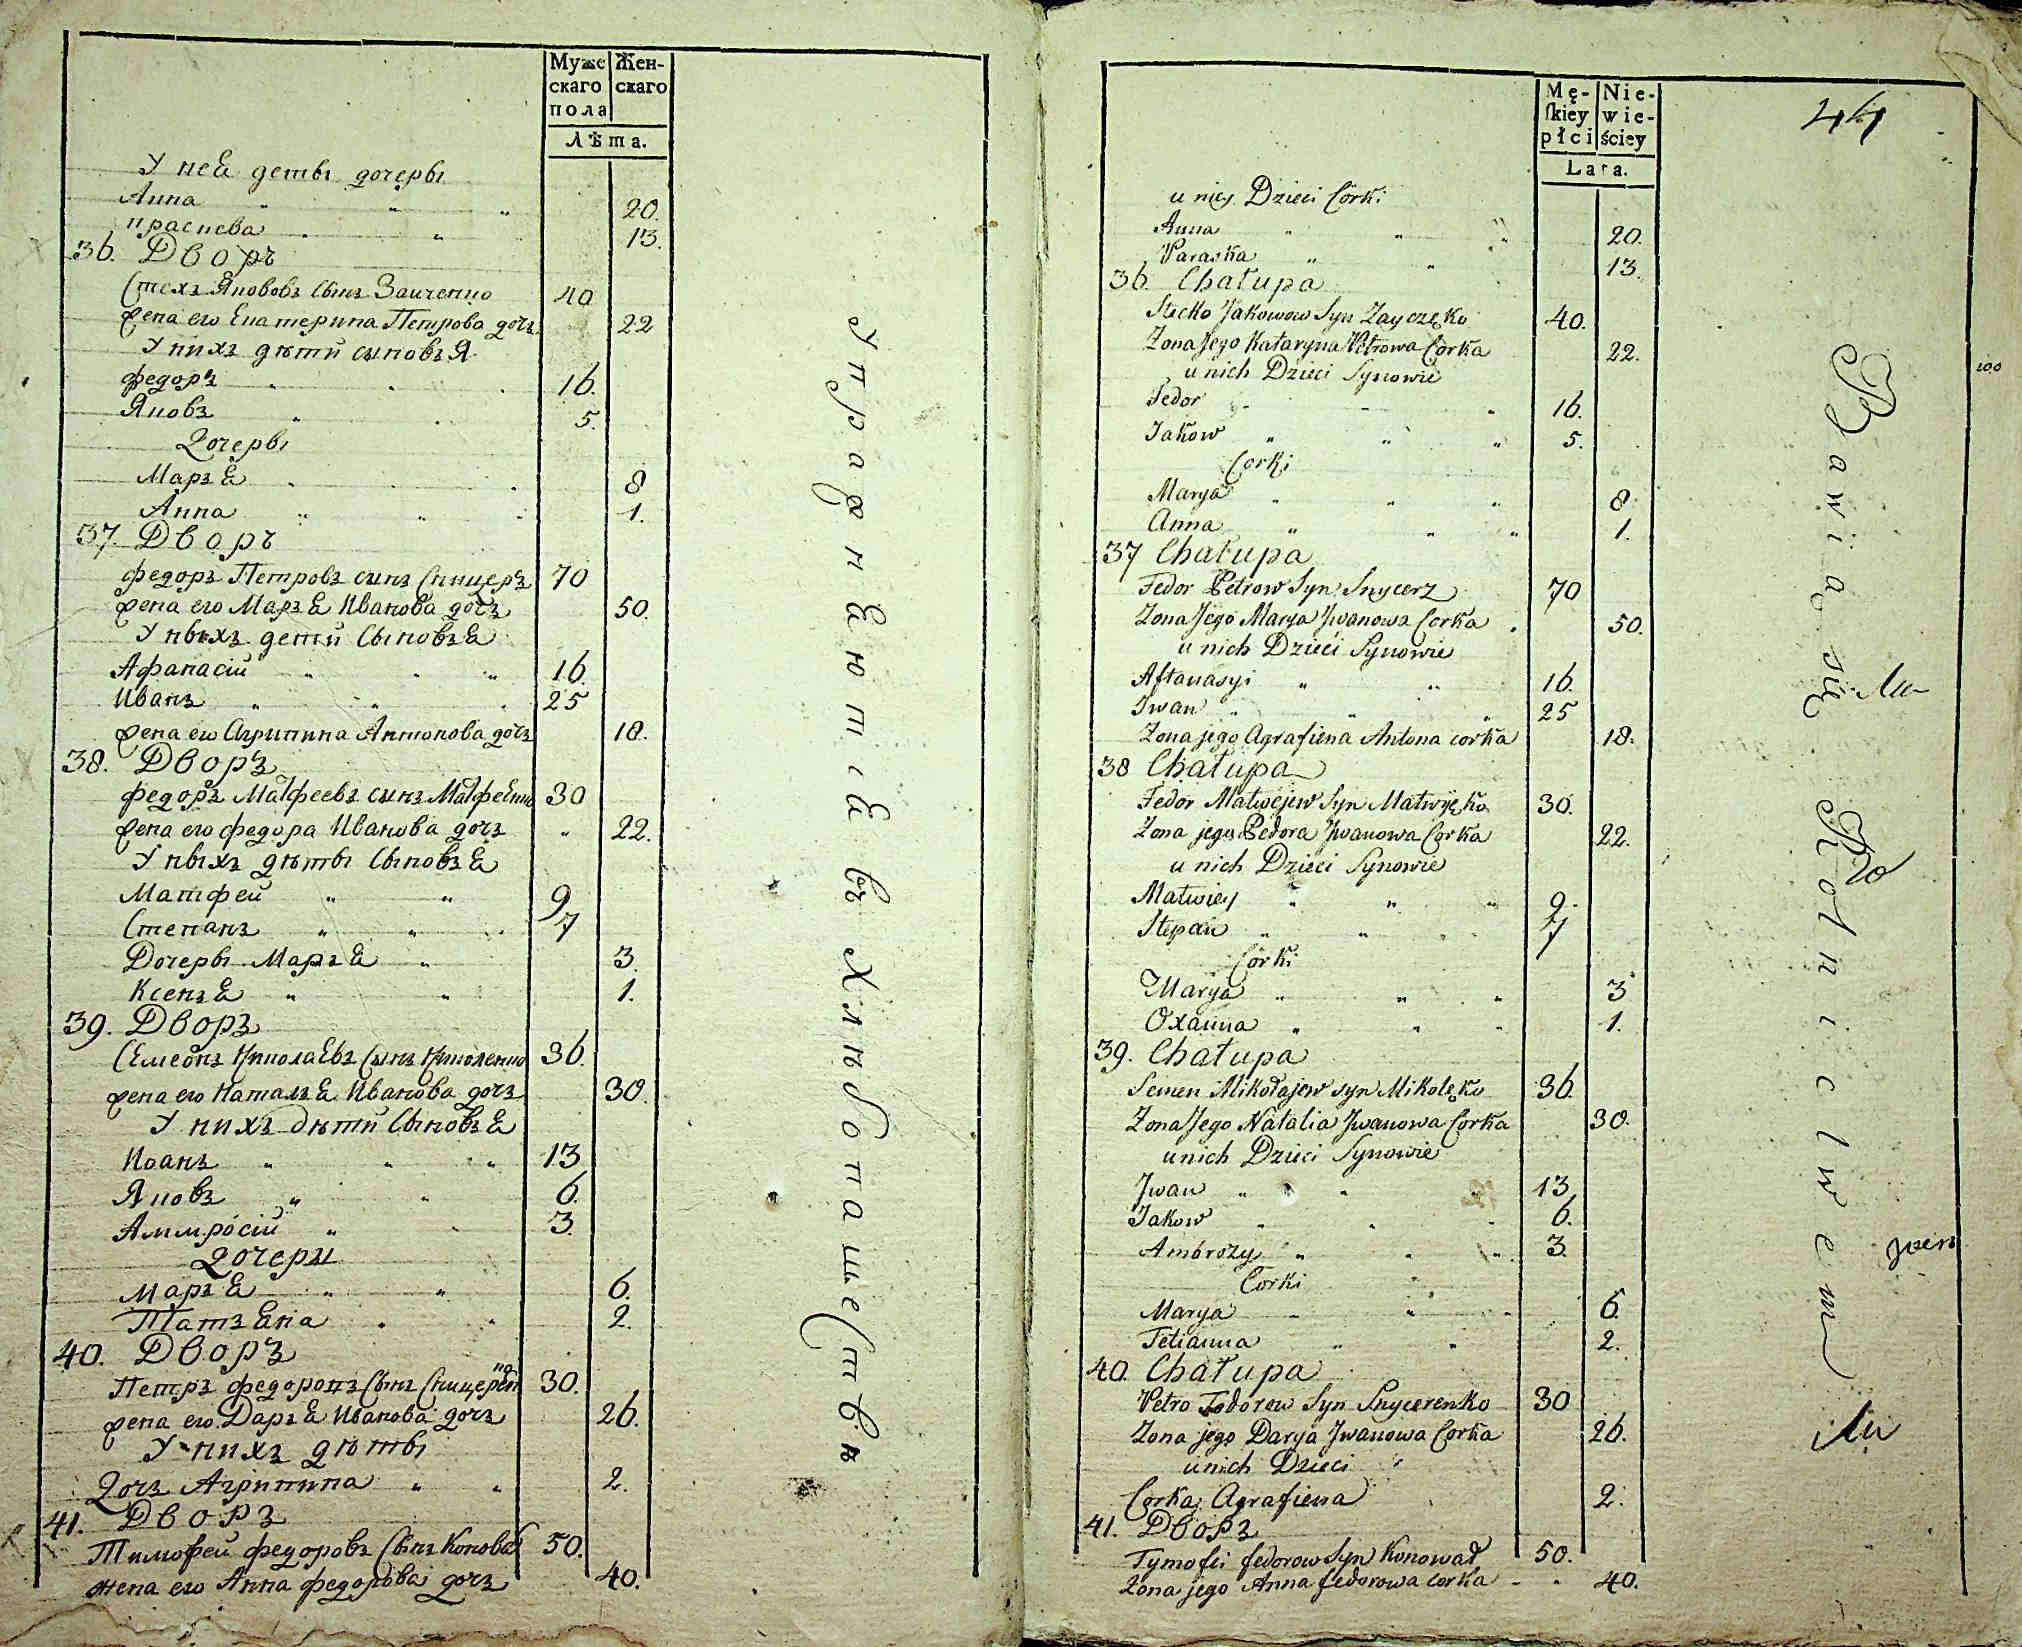 Муже
скаго
пола
Жен-
скаго
Лѣта.
У неѣ детьі дочерьі
Анна 20.
Прасцева 13.
36. Дворъ
Стехъ Яцововъ сынъ Заиченцо 40
жена его Екатерина Петрова дочъ 22
У нихъ дѣти сыновъя
Федоръ 16.
Яцовъ 5.
Дочерьі
Маръѣ 8
Анна 1.
37. Дворъ
Федоръ Петровъ сынъ Сницеръ 70
жена его Маръѣ Иванова дочъ 50.
У ныхъ дети сыновъѣ
Афанасій 16.
Иванъ 25
жена его Агрипина Антонова дочъ 18.
38. Дворъ
Федоръ Матфеевъ сынъ 30
жена его Федора Иванова дочъ 22.
У ныхъ дѣтьі сыновъѣ
Матфей 9
Степанъ 7
Дочерьі Маръѣ 3.
Ксенъѣ 1.
39. Дворъ
Семеонъ сынъ 36.
жена его Наталъѣ Иванова дочъ 30.
У нихъ дѣти сыновъѣ
Иоанъ 13
Яцовъ 6.
Аммросій 3.
Дочери
Маръѣ 6.
Татъѣна 2.
40. Дворъ
Петръ сынъ 30.
жена его Даръѣ Иванова дочъ 26.
У нихъ дѣтьі
Дочъ Агрипина 2.
41. Дворъ
Тимофей Федоровъ сынъ Коновал 50.
жена его Анна Федорова дочъ 40.
Упражнѣютсѣ въ Хлѣбопашествѣ
Mę-
skiey
płci
Nie-
wie-
ściey
Lata.
44
u niey Dzieci Corki
Anna 20.
Paraska 13.
36. Chałupa
Stecko Jakowow Syn Zayczęko 40.
Zona Jego Kataryna Petrowa Corka 22.
u nich Dzieci Synowie
Fedor 16.
Jakow 5.
Corki
Marya 8
Anna 1.
37 Chałupa
Fedor Petrow Syn Snycerz 70
Zona Jego Marya Jwanowa Corka 50.
u nich Dzieci Synowie
Aftanasyi 16.
Jwan 25
Zona jego Agrafiena Antona corka 18.
38 Chałupa
Fedor Matwejew Syn Matwyęko 30.
Zona jego Fedora Jwanowa Corka 22.
u nich Dzieci Synowie
Matwiey 9.
Stepan 7
Corki
Marya 3
Oxanna 1.
39. Chałupa
Semen Mikołajew syn Mikolęko 36.
Zona Jego Natalia Jwanowa Corka 30.
u nich Dzieci Synowie
Jwan 13
Jakow 6.
Ambrozy 3.
Corki
Marya 6
Tetianna 2.
40. Chałupa
Petro Fodorow Syn Snycerenko 30
Zona jego Darya Jwanowa Corka 26.
u nich Dzieci
Corka Agrafiena 2.
41. Дворъ
Tymofei fedorow Syn Konował 50.
Zona jego Anna fedorowa corka 40.
Bawią się Rolnictwem
100